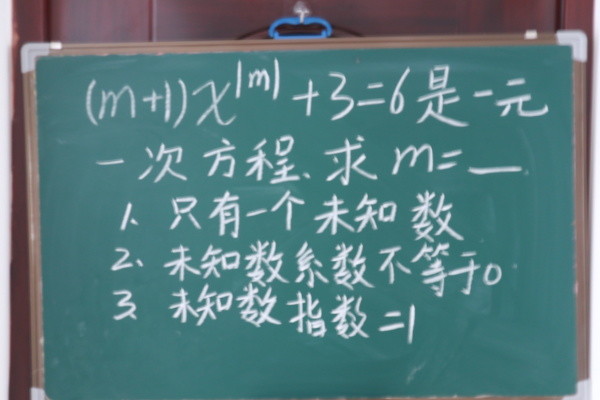 (m+1)x^|m|+3=6是一元
一次方程、求m=__.
1、只有一个未知数
2、未知数系数不等于0
3、未知数指数=1